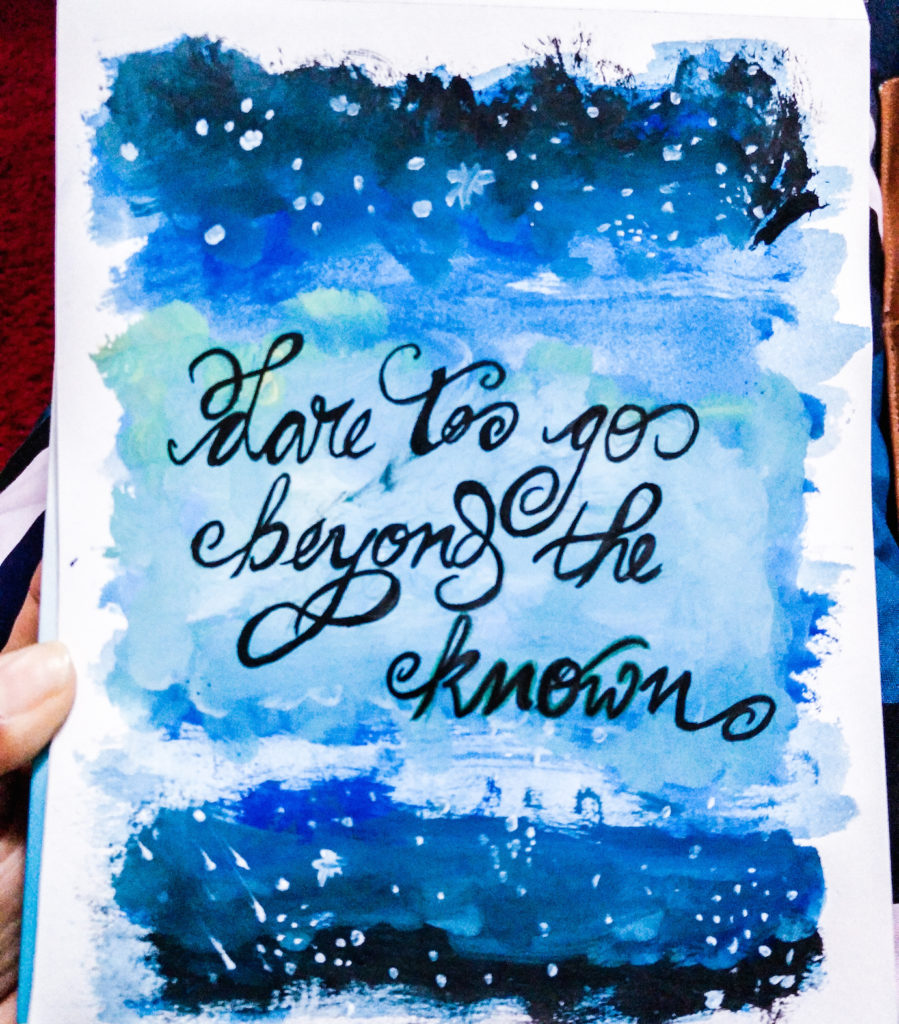 dare to go
beyond the
known